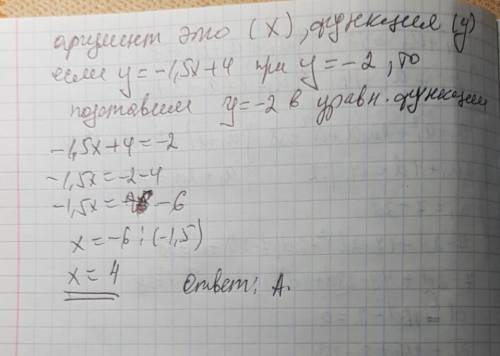 аргумент это (x), функция (y)
если y=-1,5x+4 при y=-2, то
подставим y=-2 в уравн. функции
-1,5x+4=-2
-1,5x=-2-4
-1,5x= -6
x=-6:(-1,5)
x=4 Ответ: А.